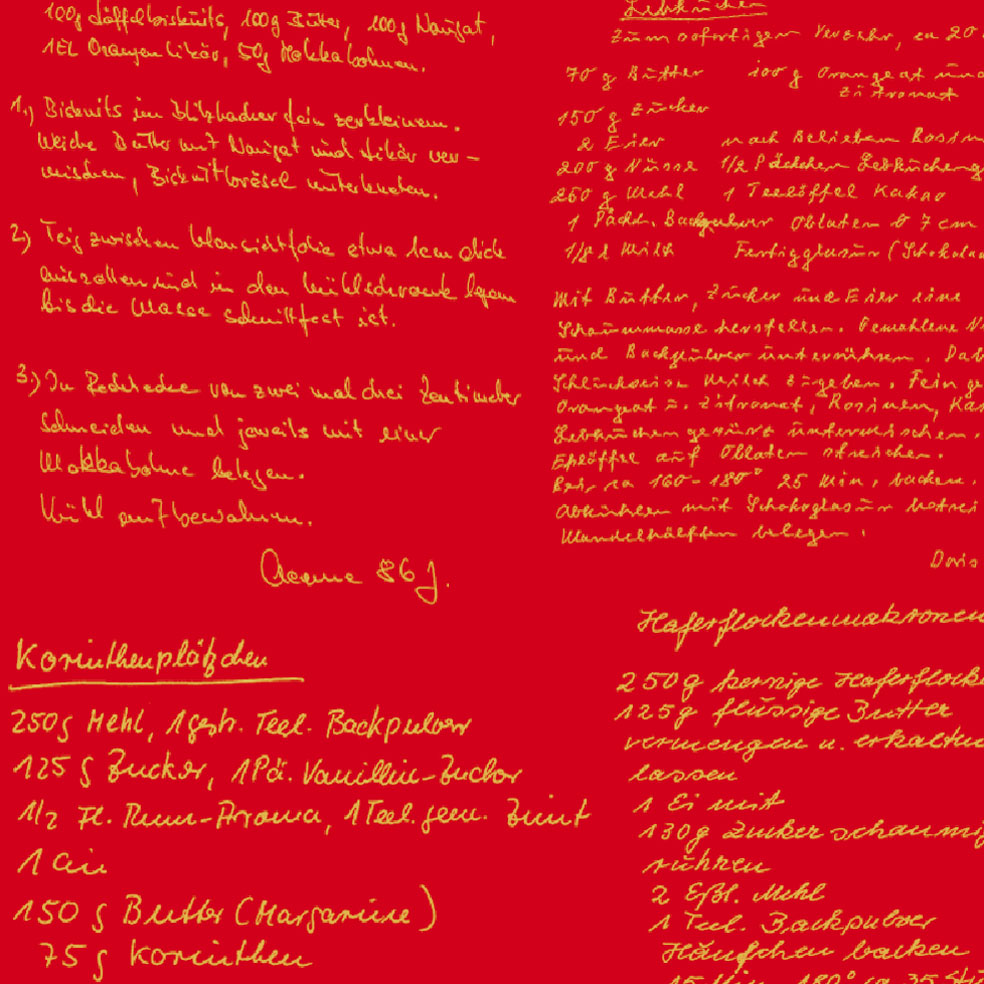 100g Löffelbiskuits, 100g Butter, 100g Nougat,
1EL Orangenlikör, 50g Mokkabohnen.
1.) Biskuits im Blitzhacker fein zerkleinern.
Weiche Butter mit Nougat und Likör ver-
mischen, Biskuitbrösel unterkneten.
2.) Teig zwischen Klarsichtfolie etwa 1cm dick
ausrollen und in den Kühlschrank legen
bis die Masse schnittfest ist.
3.) In Rechtecke von zwei mal drei Zentimeter
schneiden und jeweils mit einer
Mokkabohne belegen.
Kühl aufbewahren.
86 J.
Korinthenplätzchen
250g Mehl, 1 gestr. Teel. Backpulver
125 g Zucker, 1 Pä. Vanillin-Zucker
1/2 Fl. Rum-Aroma, 1 Teel. gem. Zimt
1 Ei
150 g Butter (Margarine)
75 g Korinthen
Lebkuchen
zum sofortigen Verzehr, ca 20
70 g Butter 100 g Orangeat und
Zitronat
150 g Zucker
2 Eier nach Belieben Rosin
200 g Nüsse 1/2 Päckchen Lebkucheng
250 g Mehl 1 Teelöffel Kakao
1 Päckch. Backpulver Oblaten ø 7 cm
1/8 l Milch Fertigglasur (Schokolad
Mit Butter, Zucker und Eier eine
Schaummasse herstellen. Gemahlene N
und Backpulver unterrühren. Dab
Schluckweise Milch zugeben. Fein ge
Orangeat u. Zitronat, Rosinen, Ka
Lebkuchengewürz untermischen.
Eßlöffel auf Oblaten streichen.
Bei ca 160-180° 25 Min. backen.
Abkühlen mit Schokoglasur bestrei
Mandelhälften belegen.
Doris
Haferflockenmakronen
250g kernige Haferflocke
125g flüssige Butter
vermengen u. erkalten
lassen
1 Ei mit
130g Zucker schaumi
rühren
2 Eßl. Mehl
1 Teel. Backpulver
Häufchen backen
15 Min. 180° ca 35 Stü